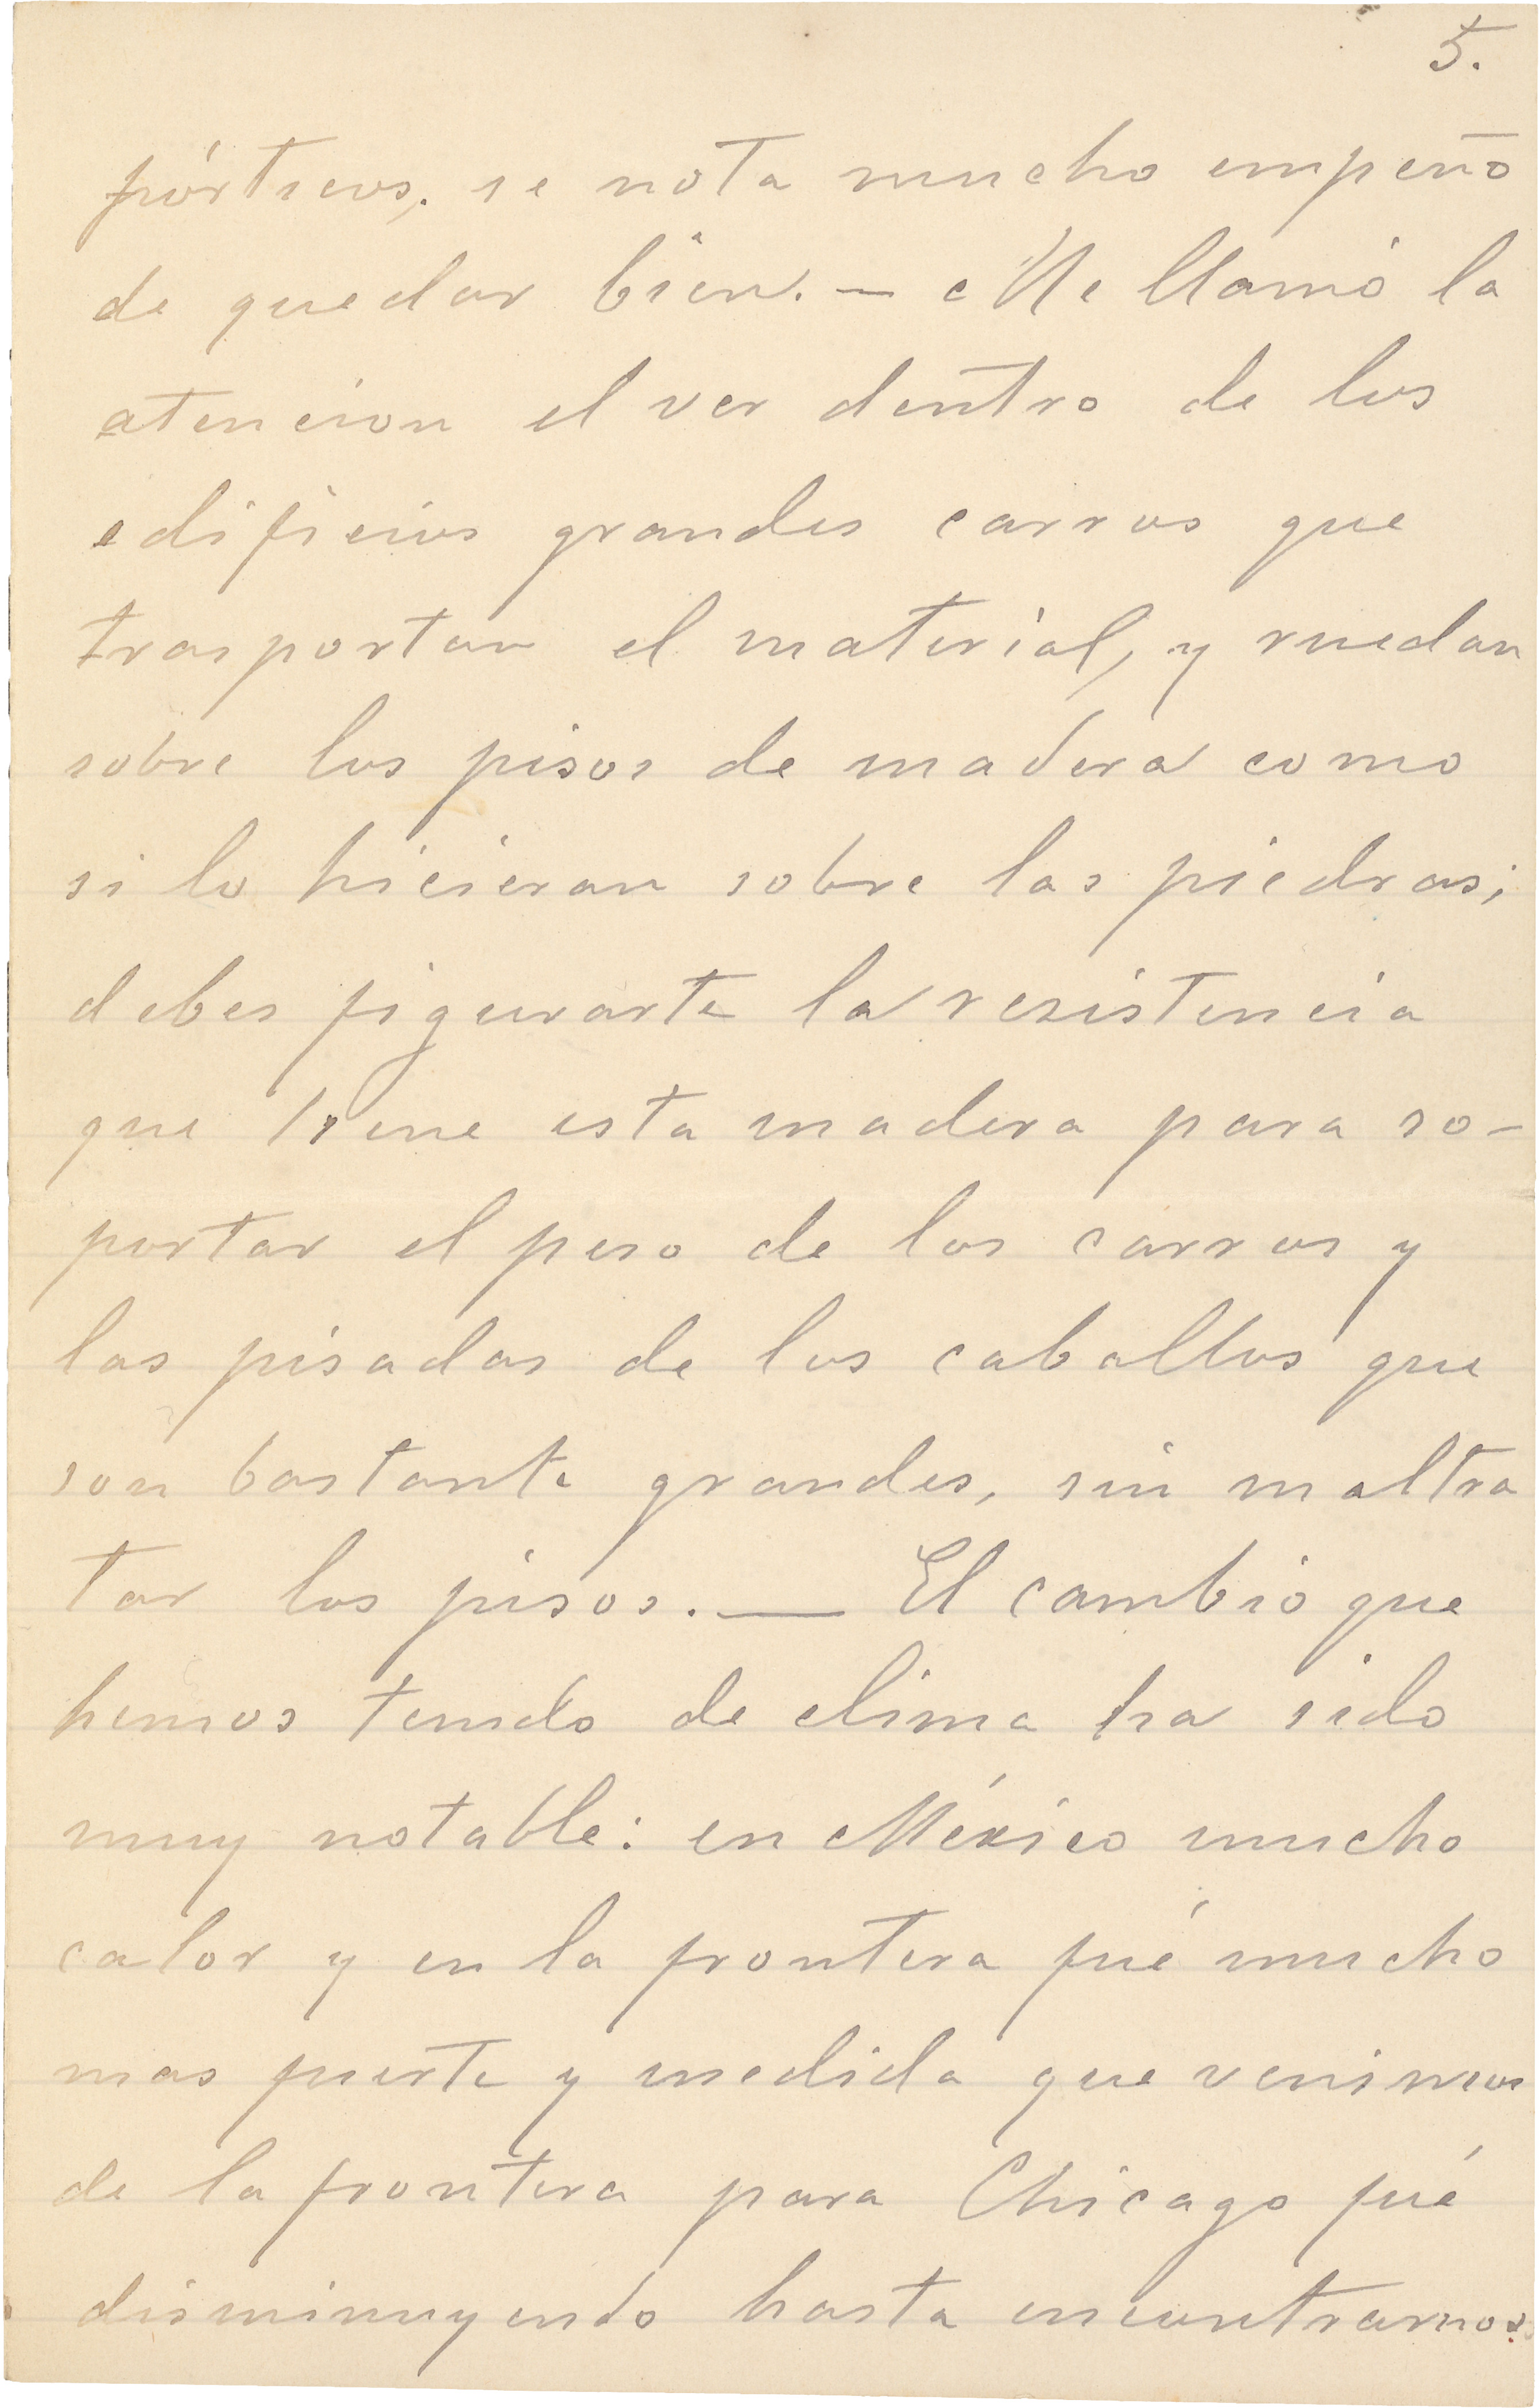 5.
pórticos, se nota mucho empeño
de quedar bien. — Me llamó la
atencion el ver dentro de los
edificios grandes carros que
trasportan el material, y ruedan
sobre los pisos de madera como
si lo hicieran sobre las piedras;
debes figurarte la resistencia
que tiene esta madera para so-
portar el peso de los carros y
las pisadas de los caballos que
son bastante grandes, sin maltra
tar los pisos. — El cambio que
hemos tenido de clima ha sido
muy notable: en México mucho
calor y en la frontera fué mucho
mas fuerte y medida que venimos
de la frontera para Chicago fué
disminuyendo hasta encontrarnos